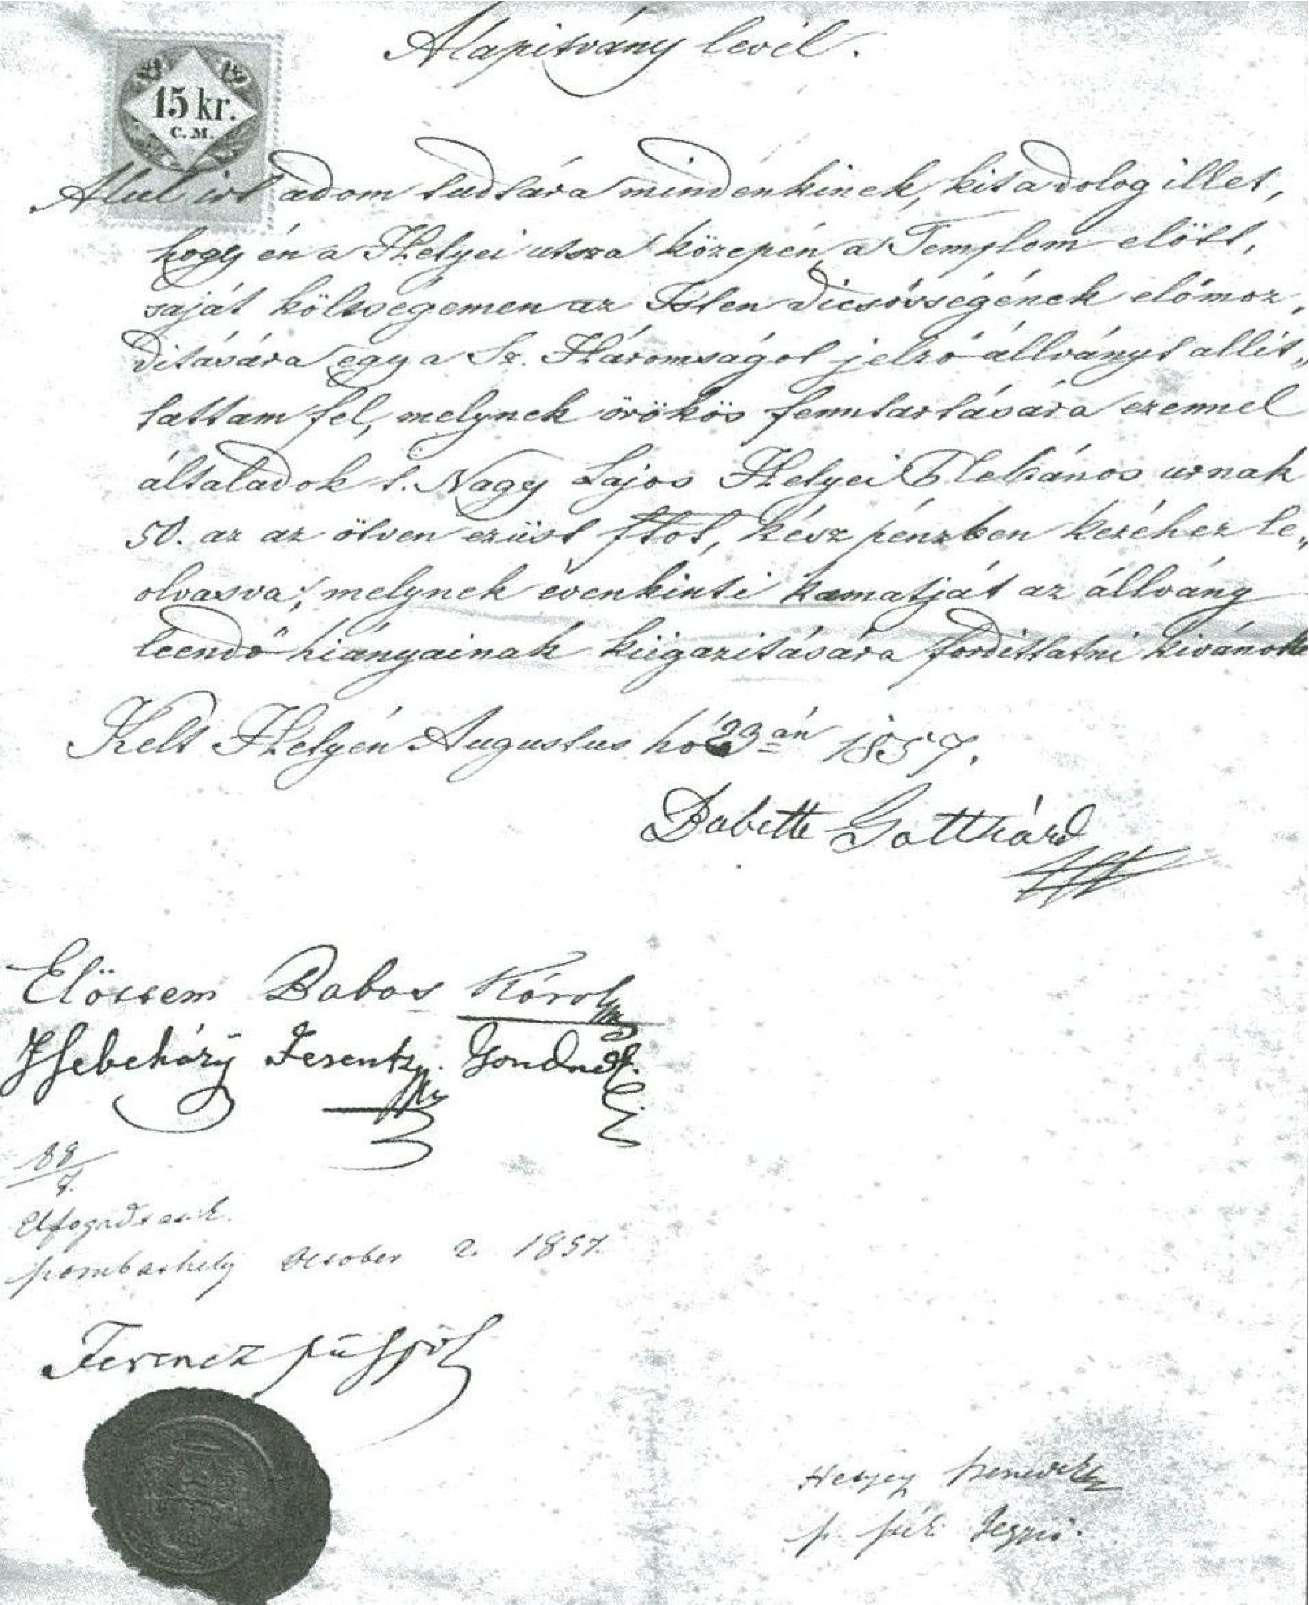 Alapitvány levél.
15 kr.
C.M.
Alul irt adom tudtára mindenkinek, kit a dolog illet,
hogy én a Helyei utsza közepén, a Templom előtt,
saját költségemen az Isten dicsősségének előmoz„
ditására egy a Sz. Háromságot jelző állványt allit„
tattam fel, melynek örökös fenntartására ezennel
általadok t. Nagy Lajos Helyei Plebános urnak
50. az az ötven ezüst ftot, kész pénzben kezéhez le„
olvasva, melynek évenkinti kamatját az állvány
leendő hiányainak kiigazitására fordittatni kivánok
Kelt Helyén Augustus hó 23án 1857.
Babette Gotthárd
Előttem Babos Károly
Ferentz Gondnok
88/7.
Elfogadtatik.
Szombathely October 2. 1857.
Ferencz püspök
p. szék. Jegyző.